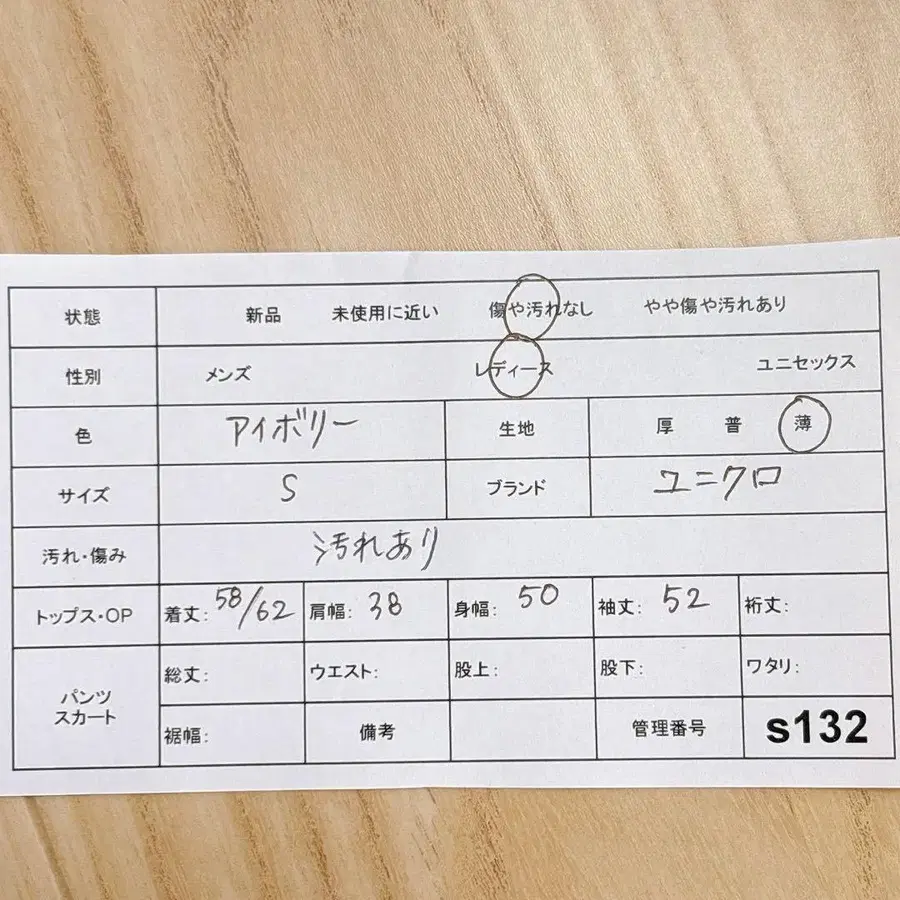 状態 新品 未使用に近い 傷や汚れなし やや傷や汚れあり
性別 メンズ レディース ユニセックス
色 アイボリー 生地 厚 普 薄
サイズ S ブランド ユニクロ
汚れ・傷み 汚れあり
トップス・OP 着丈: 58/62 肩幅: 38 身幅: 50 袖丈: 52 裄丈:
パンツ スカート 総丈: ウエスト: 股上: 股下: ワタリ:
裾幅: 備考 管理番号 s132